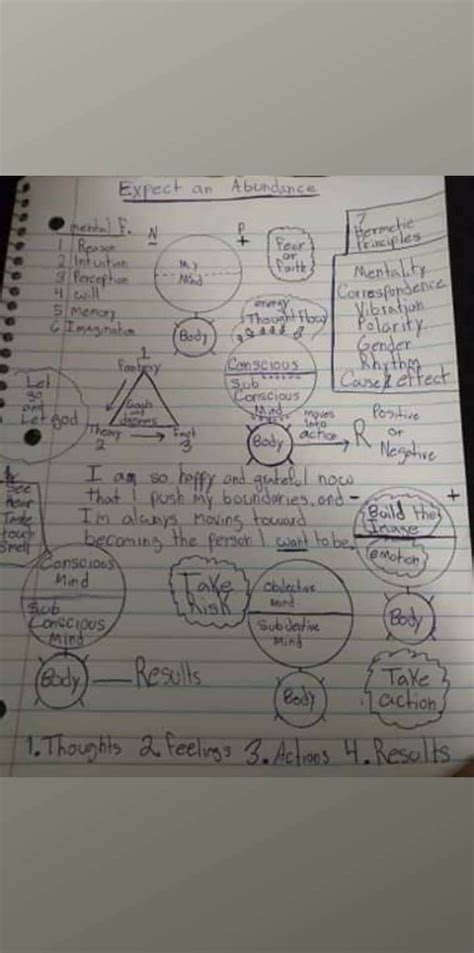 Expect an Abundance
mental F.
1 Reason
2 Intuition
3 Perception
4 will
5 Memory
6 Imagination
N
P
+
My
Mind
Body
Fear
or
Faith
7
Hermetic
Principles
Mentality
Correspondence
Vibration
Polarity
Gender
Rhythm
Cause & effect
Let
go
and
Let god
1
Fantasy
Goals
and
desires
Theory
2
Fact
3
energy
Thought Flow
Conscious
Sub
Conscious
Mind
Body
moves
into
action
R
Positive
or
Negative
I am so happy and grateful now
that I push my boundaries, and
I'm always moving toward
becoming the person I want to be.
See
Hear
Taste
touch
Smell
-
+
Build the
Image
emotion
Body
Conscious
Mind
Sub
Conscious
Mind
Body
Results
Take
Risk
Objective
Mind
Subjective
Mind
Body
Take
action
1. Thoughts 2. Feelings 3. Actions 4. Results